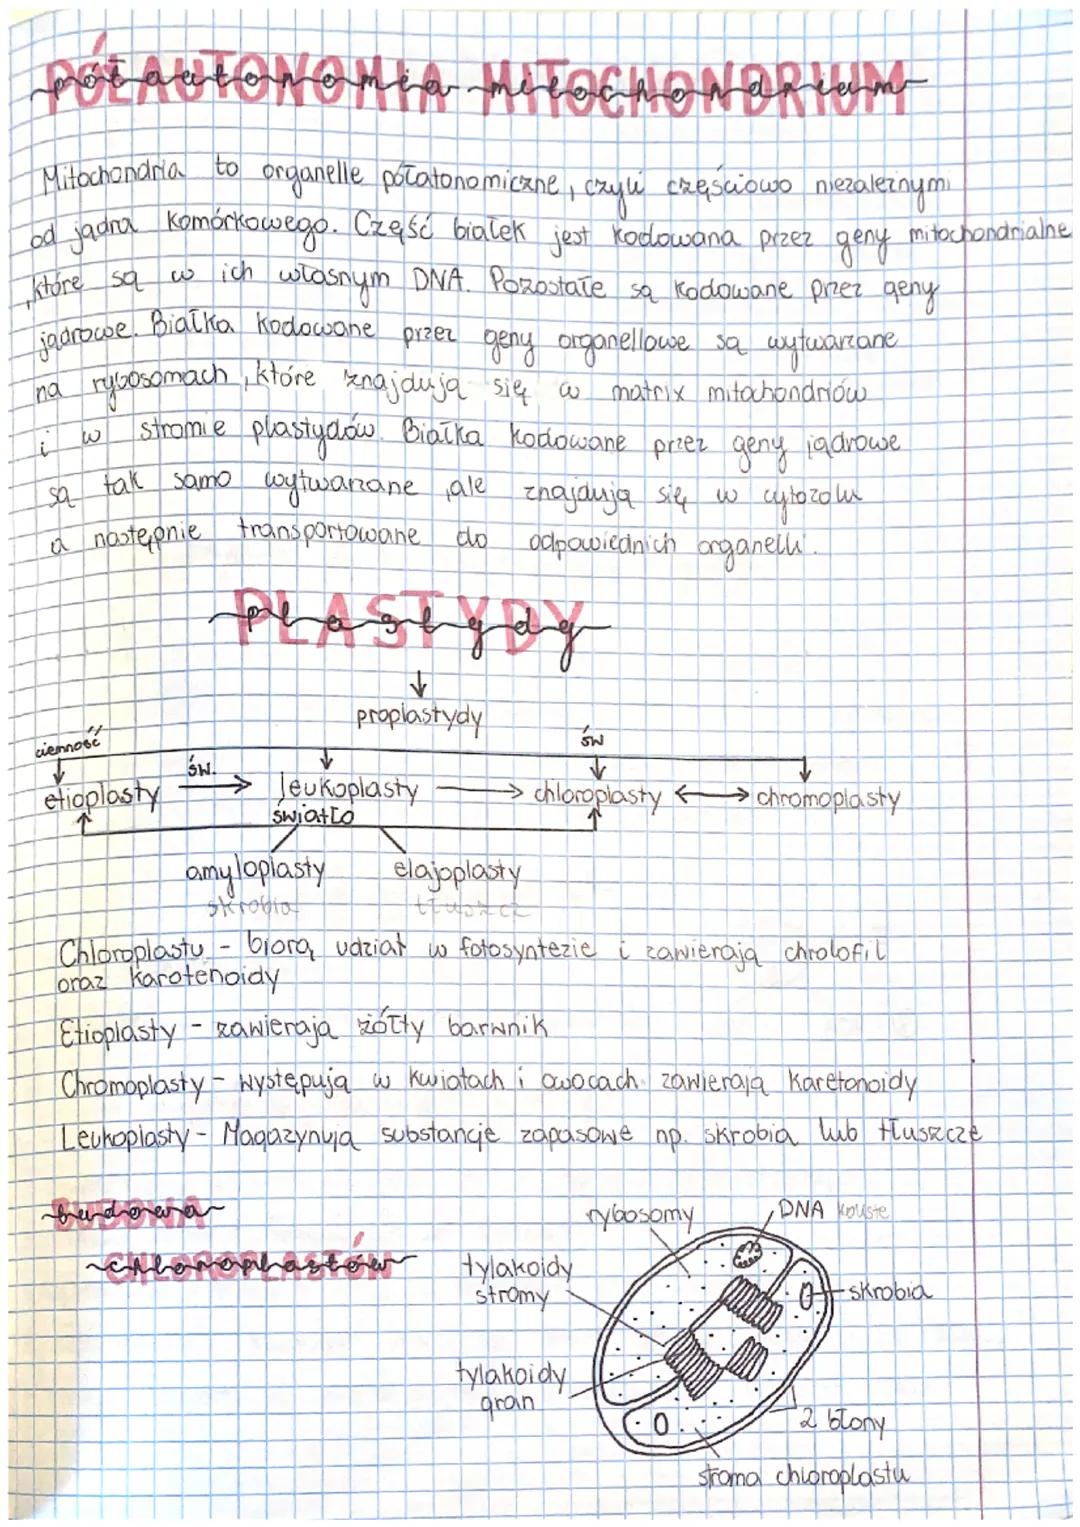 PÓŁAUTONOMIA MITOCHONDRIUM
Mitochondria to organelle półatonomiczne, czyli częściowo niezależnymi
od jądra komórkowego. Część białek jest kodowana przez geny mitochondrialne
, które są w ich własnym DNA. Pozostałe są kodowane przez geny
jądrowe. Białka kodowane przez geny organellowe są wytwarzane
na rybosomach, które znajdują się w matrix mitochondriów
i w stromie plastydów. Białka kodowane przez geny jądrowe
są tak samo wytwarzane, ale znajdują się w cytozolu
a następnie transportowane do odpowiednich organelli.
PLASTYDY
proplastydy
ciemność św
etioplasty św. leukoplasty chloroplasty chromoplasty
światło
amyloplasty elajoplasty
skrobia tłuszcz
Chloroplastu - biorą udział w fotosyntezie i zawierają chrolofil
oraz karotenoidy
Etioplasty - zawierają żółty barwnik
Chromoplasty - występują w kwiatach i owocach. zawierają karetonoidy
Leukoplasty - Magazynują substancje zapasowe np. skrobia lub tłuszcze
BUDOWA
CHLOROPLASTÓW
rybosomy DNA koliste
tylakoidy
stromy
skrobia
tylakoidy
gran
2 błony
stroma chloroplastu